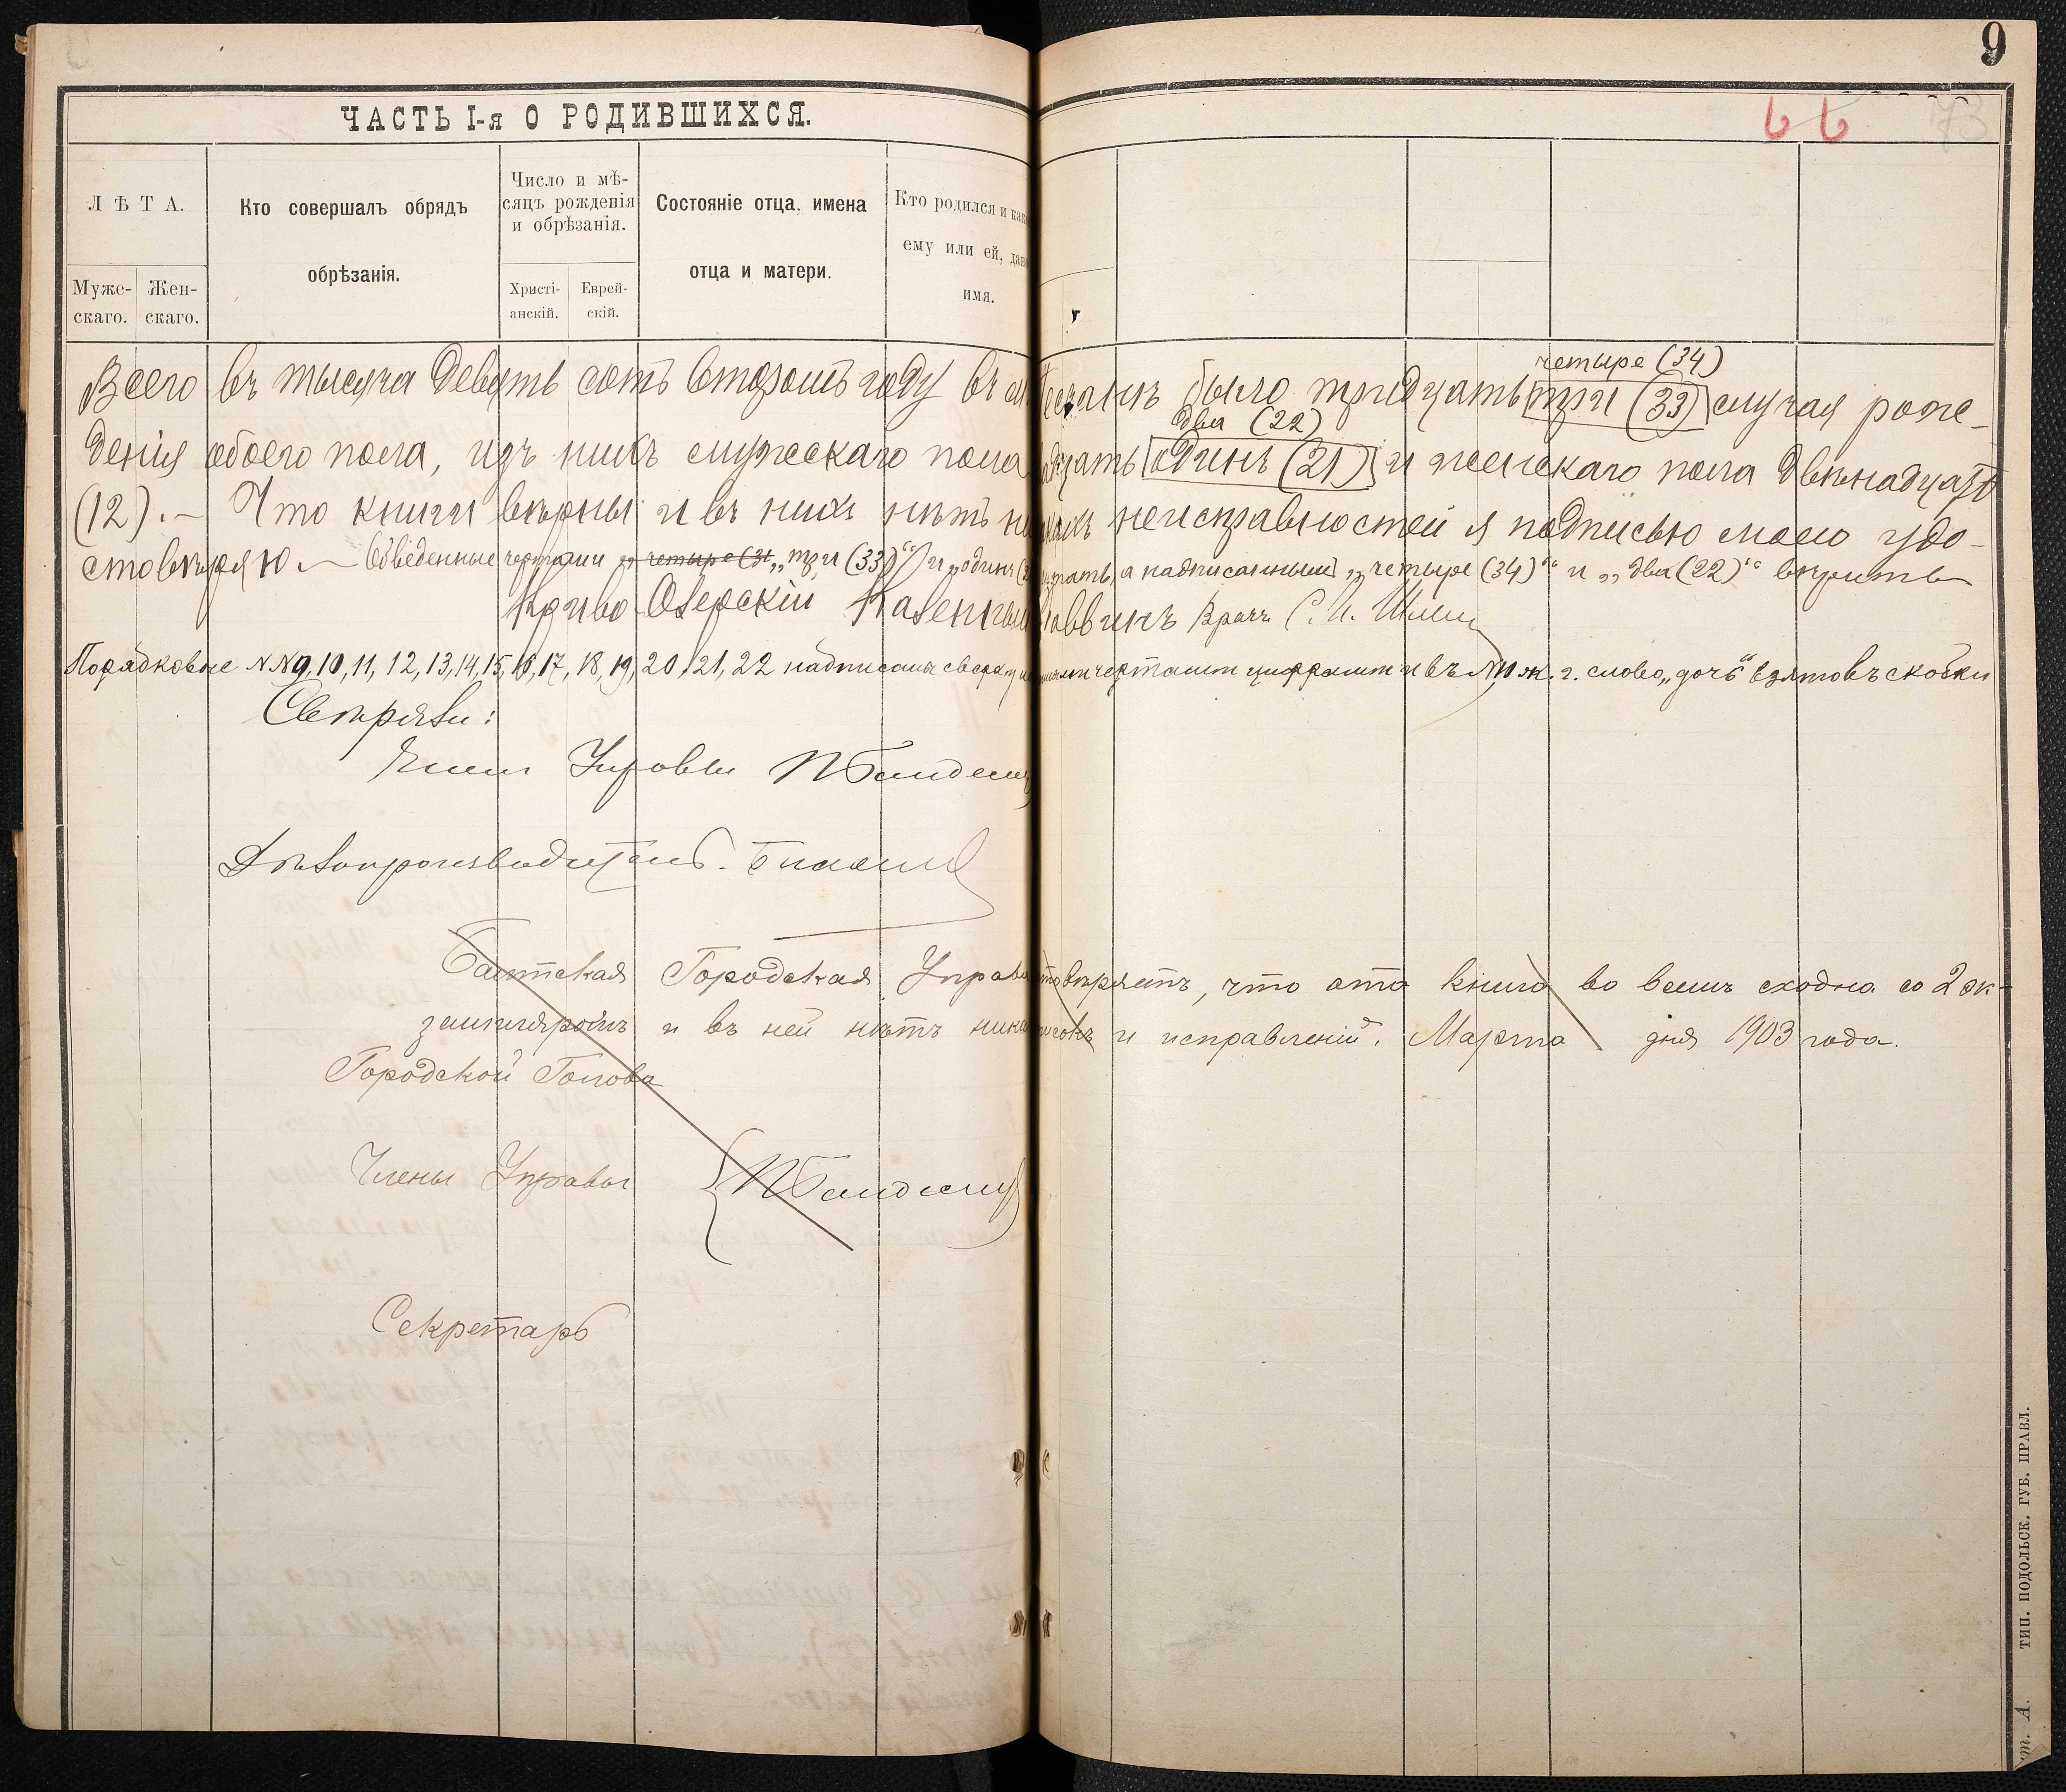 9
ЧАСТЬ I-я О РОДИВШИХСЯ.
66
73
ЛѢТА.
Муже-
скаго.
Жен-
скаго.
Кто совершалъ обрядъ
обрѣзанія.
Число и мѣ-
сяцъ рожденія
и обрѣзанія.
Христі-
анскій.
Еврей-
скій.
Состояніе отца, имена
отца и матери.
Кто родился и как
ему или ей, дано
имя.
четыре (34)
Всего въ тысяча девять сотъ второмъ году въ было тридцать три (33) случая рож-
два (22)
денія обоего пола, изъ нихъ мужескаго пола дцать одинъ (21) и женскаго пола двѣнадцать
(12).- Что книги вѣрны и въ нихъ нѣтъ неисправностей я подписью моею удо-
стовѣряю.- Обведенные чертами четыре (34 „три (33)“ и „одинъ а надписанныя „четыре (34)“ и „два (22)“ вѣрить
Криво-Озерскій Казенный Раввинъ Врачъ С. И.
Порядковые №№ 9, 10, 11, 12, 13, 14, 15, 16, 17, 18, 19, 20, 21, 22 надписаны сверху чертами цифрами и въ № 10 ж. г. слово „дочь“ взято въ скобки
Свѣряли:
Членъ Управы
Дѣлопроизводитель.
Балтская Городская Управа товѣряетъ, что эта книга во всемъ сходна со 2 эк-
земпляромъ и въ ней нѣтъ никак исокъ и исправленій. Марта дня 1903 года.
Городской Голова
Члены Управы
Секретарь
ТИП. ПОДОЛЬСК. ГУБ. ПРАВЛ.
т. А.